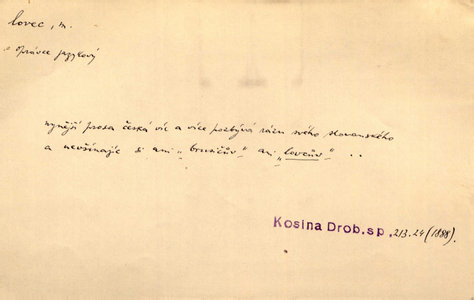 lovec, m.
o opravce jazykový
nynější prosa česká víc a více pozbývá rázu svého slovanského
a nevšímajíc si ani „brusičův" ani „lovcův" ..
Kosina Drob. sp. 213.24 (1888).